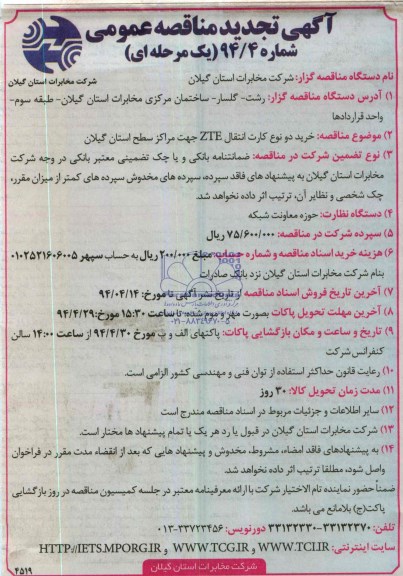 آگهی تجدید مناقصه عمومی
شماره ۹۴/۴ (یک مرحله ای)
شرکت مخابرات استان گیلان
نام دستگاه مناقصه گزار: شرکت مخابرات استان گیلان
۱) آدرس دستگاه مناقصه گزار: رشت- گلسار- ساختمان مرکزی مخابرات استان گیلان- طبقه سوم-
واحد قراردادها
۲) موضوع مناقصه: خرید دو نوع کارت انتقال ZTE جهت مراکز سطح استان گیلان
۳) نوع تضمین شرکت در مناقصه: ضمانتنامه بانکی و یا چک تضمینی معتبر بانکی در وجه شرکت
مخابرات استان گیلان به پیشنهاد های فاقد سپرده، سپرده های مخدوش سپرده های کمتر از میزان مقرر،
چک شخصی و نظایر آن، ترتیب اثر داده نخواهد شد.
۴) دستگاه نظارت: حوزه معاونت شبکه
۵) سپرده شرکت در مناقصه: ۷۵/۶۰۰/۰۰۰ ریال
۶) هزینه خرید اسناد مناقصه و شماره حساب: مبلغ ۲۰۰/۰۰۰ ریال به حساب سپهر ۰۱۰۲۵۲۱۶۰۶۰۰۵
بنام شرکت مخابرات استان گیلان نزد بانک صادرات
۷) آخرین تاریخ فروش اسناد مناقصه از تاریخ نشر آگهی تا مورخ: ۹۴/۰۴/۱۴
۸) آخرین مهلت تحویل پاکات بصورت مهر و موم شده: تا ساعت ۱۵:۳۰ مورخ: ۹۴/۴/۲۹
۹) تاریخ و ساعت و مکان بازگشایی پاکات: پاکتهای الف و ب مورخ ۹۴/۴/۳۰ از ساعت ۱۴:۰۰ سالن
کنفرانس شرکت
۱۰) رعایت قانون حداکثر استفاده از توان فنی و مهندسی کشور الزامی است.
۱۱) مدت زمان تحویل کالا: ۳۰ روز
۱۲) سایر اطلاعات و جزئیات مربوط در اسناد مناقصه مندرج است
۱۳) شرکت مخابرات استان گیلان در قبول یا رد هر یک یا تمام پیشنهاد ها مختار است.
۱۴) به پیشنهادهای فاقد امضاء، مشروط، مخدوش و پیشنهاد هایی که بعد از انقضاء مدت مقرر در فراخوان
واصل شود، مطلقا ترتیب اثر داده نخواهد شد.
ضمناً حضور نماینده تام الاختیار شرکت با ارائه معرفینامه معتبر در جلسه کمیسیون مناقصه در روز بازگشایی
پاکت(ج) بلامانع می باشد.
تلفن: ۳۳۱۳۲۳۷۰-۳۳۱۳۲۳۳۰ دورنویس: ۳۳۷۲۳۴۵۶-۰۱۳
سایت اینترنتی: WWW.TCI.IR و WWW.TCG.IR و HTTP//IETS.MPORG.IR
شرکت مخابرات استان گیلان
۴۵۱۹